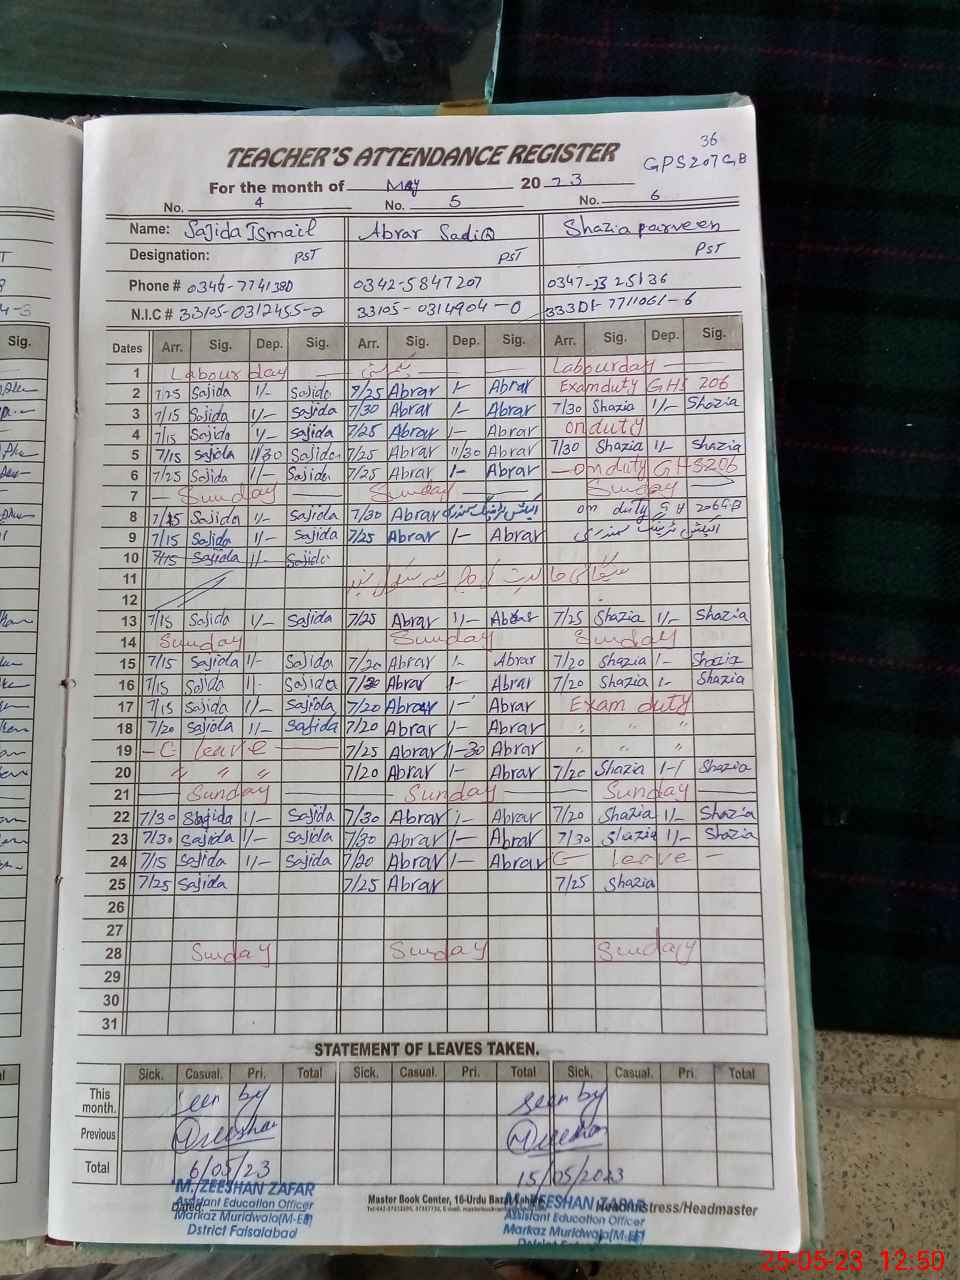 36
GPS 207 GB
TEACHER'S ATTENDANCE REGISTER
For the month of May 2023
No. 4 No. 5 No. 6
Name: Sajida Ismail Abrar Sadiq Shazia parveen
Designation: PST PST PST
Phone # 0346-7741380 0342-5847207 0347-2325136
N.I.C # 33105-0312455-2 33105-0314904-0 33301-7711061-6
Dates Arr. Sig. Dep. Sig. Arr. Sig. Dep. Sig. Arr. Sig. Dep. Sig.
1 Labour day Labourday
2 7/25 Sajida 1/- Sajida 7/25 Abrar 1- Abrar Exam duty GHS 206
3 7/15 Sajida 1/- Sajida 7/30 Abrar 1- Abrar 7/30 Shazia 1/- Shazia
4 7/15 Sajida 1/- Sajida 7/25 Abrar 1- Abrar on duty
5 7/15 Sajida 11/30 Sajida 7/25 Abrar 11/30 Abrar 7/30 Shazia 1/- Shazia
6 7/25 Sajida 1/- Sajida 7/25 Abrar 1- Abrar on duty GHS206
7 Sunday Sunday Sunday
8 7/15 Sajida 1/- Sajida 7/30 Abrar on duty G H 206GB
9 7/15 Sajida 1/- Sajida 7/25 Abrar 1- Abrar
10 7/15 Sajida 1/- Sajida
11
12
13 7/15 Sajida 1/- Sajida 7/25 Abrar 1/- Abrar 7/25 Shazia 1/- Shazia
14 Sunday Sunday Sunday
15 7/15 Sajida 1/- Sajida 7/20 Abrar 1- Abrar 7/20 Shazia 1- Shazia
16 7/15 Sajida 1/- Sajida 7/20 Abrar 1- Abrar 7/20 Shazia 1- Shazia
17 7/15 Sajida 1/- Sajida 7/20 Abrar 1- Abrar Exam duty
18 7/20 Sajida 1/- Sajida 7/20 Abrar 1- Abrar " " "
19 C leave 7/25 Abrar 1-30 Abrar " " "
20 " " " 7/20 Abrar 1- Abrar 7/20 Shazia 1-/ Shazia
21 Sunday Sunday Sunday
22 7/30 Sajida 1/- Sajida 7/30 Abrar 1- Abrar 7/20 Shazia 1/- Shazia
23 7/30 Sajida 1/- Sajida 7/30 Abrar 1- Abrar 7/30 Shazia 1/- Shazia
24 7/15 Sajida 1/- Sajida 7/20 Abrar 1- Abrar C- leave -
25 7/25 Sajida 7/25 Abrar 7/25 Shazia
26
27
28 Sunday Sunday Sunday
29
30
31
STATEMENT OF LEAVES TAKEN.
Sick. Casual. Pri. Total Sick. Casual. Pri. Total Sick. Casual. Pri. Total
This month. seen by seen by
Previous
Total 6/05/23 15/05/2023
M. ZEESHAN ZAFAR
Assistant Education Officer
Markaz Muridwala(M-EE)
Dstrict Faisalabad
Dated:
Master Book Center, 16-Urdu Bazar Lahore
Headmistress/Headmaster
M. ZEESHAN ZAFAR
Assistant Education Officer
Markaz Muridwala(M-EE)
25-05-23 12:50